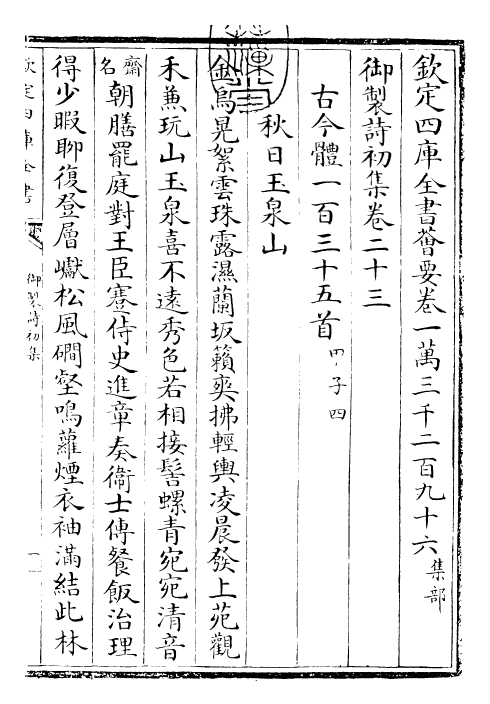 欽定四庫全書薈要卷一萬三千二百九十六 集部
御製詩初集卷二十三
古今體一百三十五首 甲子四
秋日玉泉山
金烏晃絮雲珠露濕蘭坂籟爽拂輕輿凌晨發上苑觀
禾兼玩山玉泉喜不遠秀色若相接髻螺青宛宛清音
齋名朝膳罷庭對王臣蹇侍史進章奏衞士傳餐飯治理
得少暇聊復登層巘松風磵壑鳴蘿煙衣袖滿結此林
欽定四庫全書
御製詩初集
一